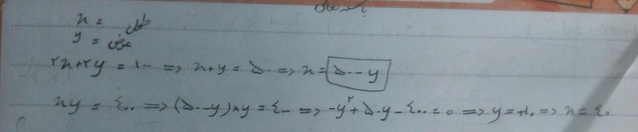 باسمه تعالی
x = طول
y = عرض
۲x+۲y = ۱۰۰ => x+y = ۵۰ => x = ۵۰-y
xy = ۴۰۰ => (۵۰-y)×y = ۴۰۰ => -y^۲+۵۰y-۴۰۰ = ۰ => y = ۱۰ => x = ۴۰